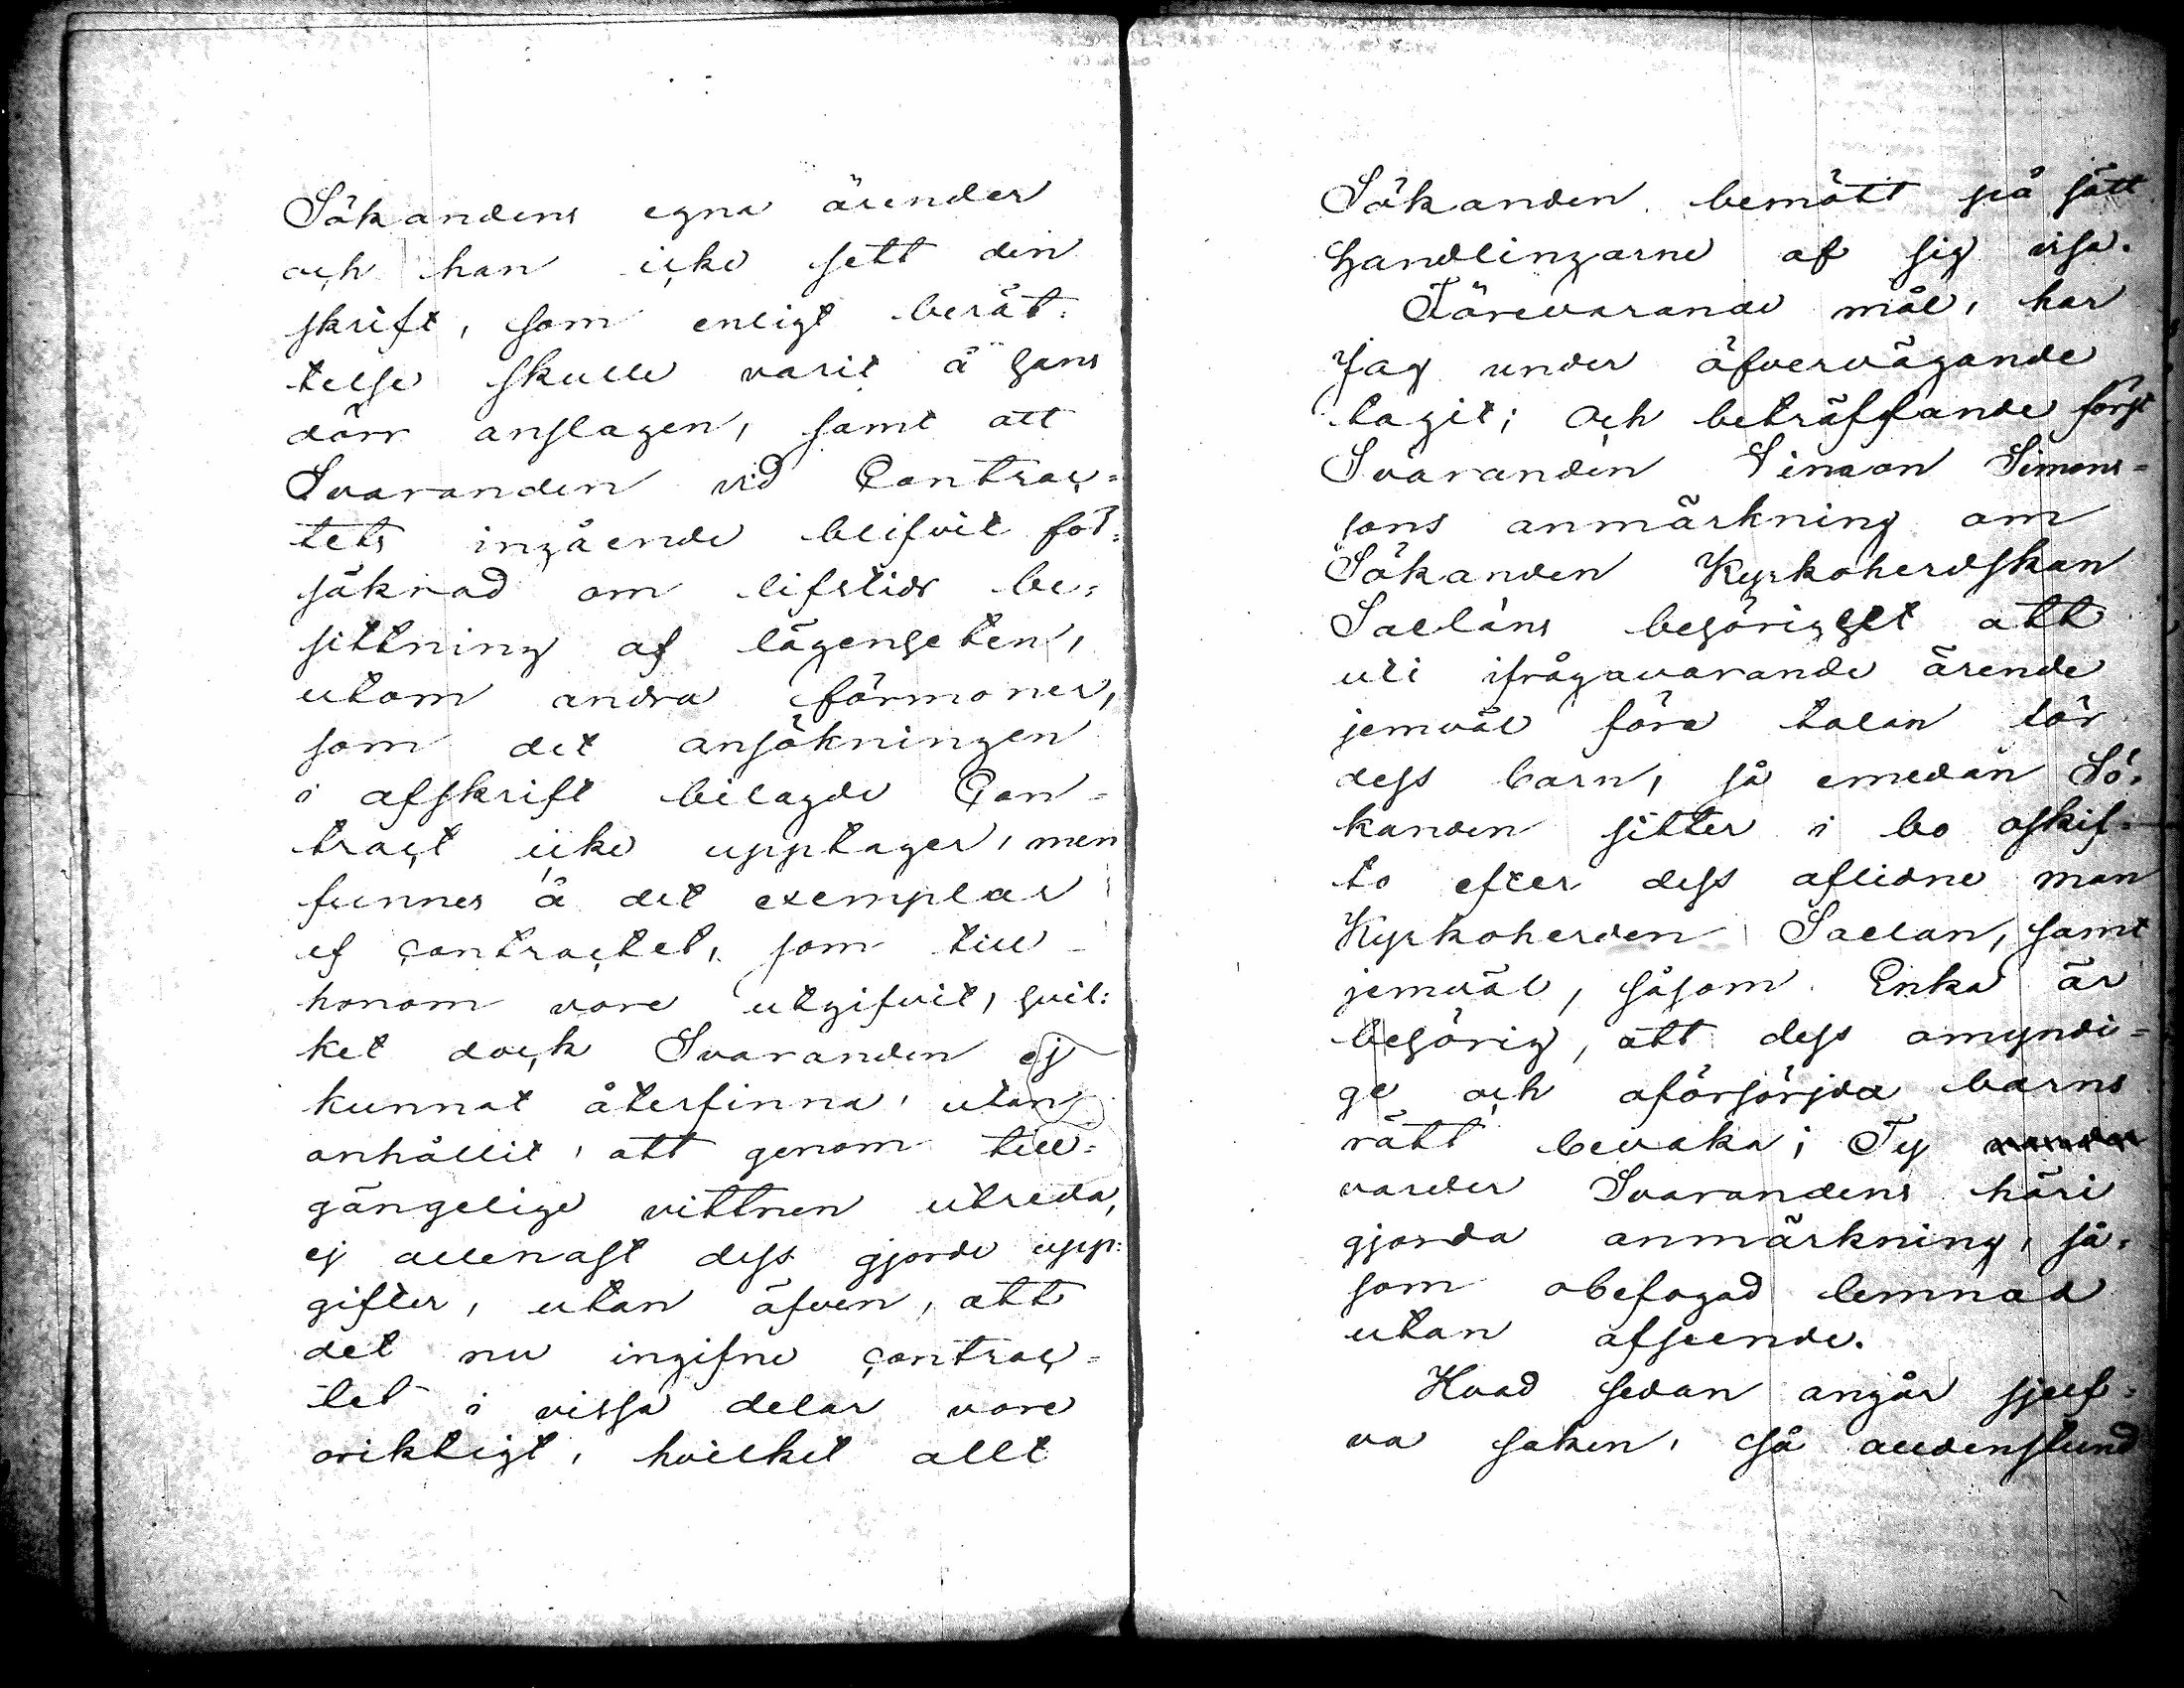 Sökandens egna ärender
och han icke sett den
skrift, som enligt berät-
telse skulle varit å hans
dörr anslagen, samt att
Svaranden vid Contrac-
tets ingående blifvit för-
säkrad om lifstids be-
sittning af lägenheten,
utom andra förmoner,
som det ansökningen
i afskrift bilagde Con-
tract icke upptager, men
funnes å det exemplar
af contractet, som till
honom vore utgifvit, hvil-
ket dock Svaranden ej
kunnat återfinna, utan
anhållit, att genom till-
gängelige vittnen utreda,
ej allenast dess gjorde upp-
gifter, utan äfven, att
det nu ingifne contrac-
tet i vissa delar vore
oriktigt, hvilket allt
Sökanden bemött på sätt
handlingarne af sig visa.
Förevarande mål, har
Jag under öfvervägande
tagit; och beträffande först
Svaranden Simon Simons-
sons anmärkning om
Sökanden Kyrkoherdskan
Saelans behörighet att
uti ifrågavarande ärende
jemväl föra talan för
dess barn, så emedan Sö-
kanden sitter i bo oskif-
to efter dess aflidne man
Kyrkoherden Saelan, samt
jemväl, såsom Enka är
behörig, att dess omyndi-
ge och oförsörjda barns
rätt bevaka; Ty
varder Svarandens häri
gjorda anmärkning, så-
som obefogad lemnad
utan afseende.
Hvad sedan angår sjelf-
va saken, så alldenstund